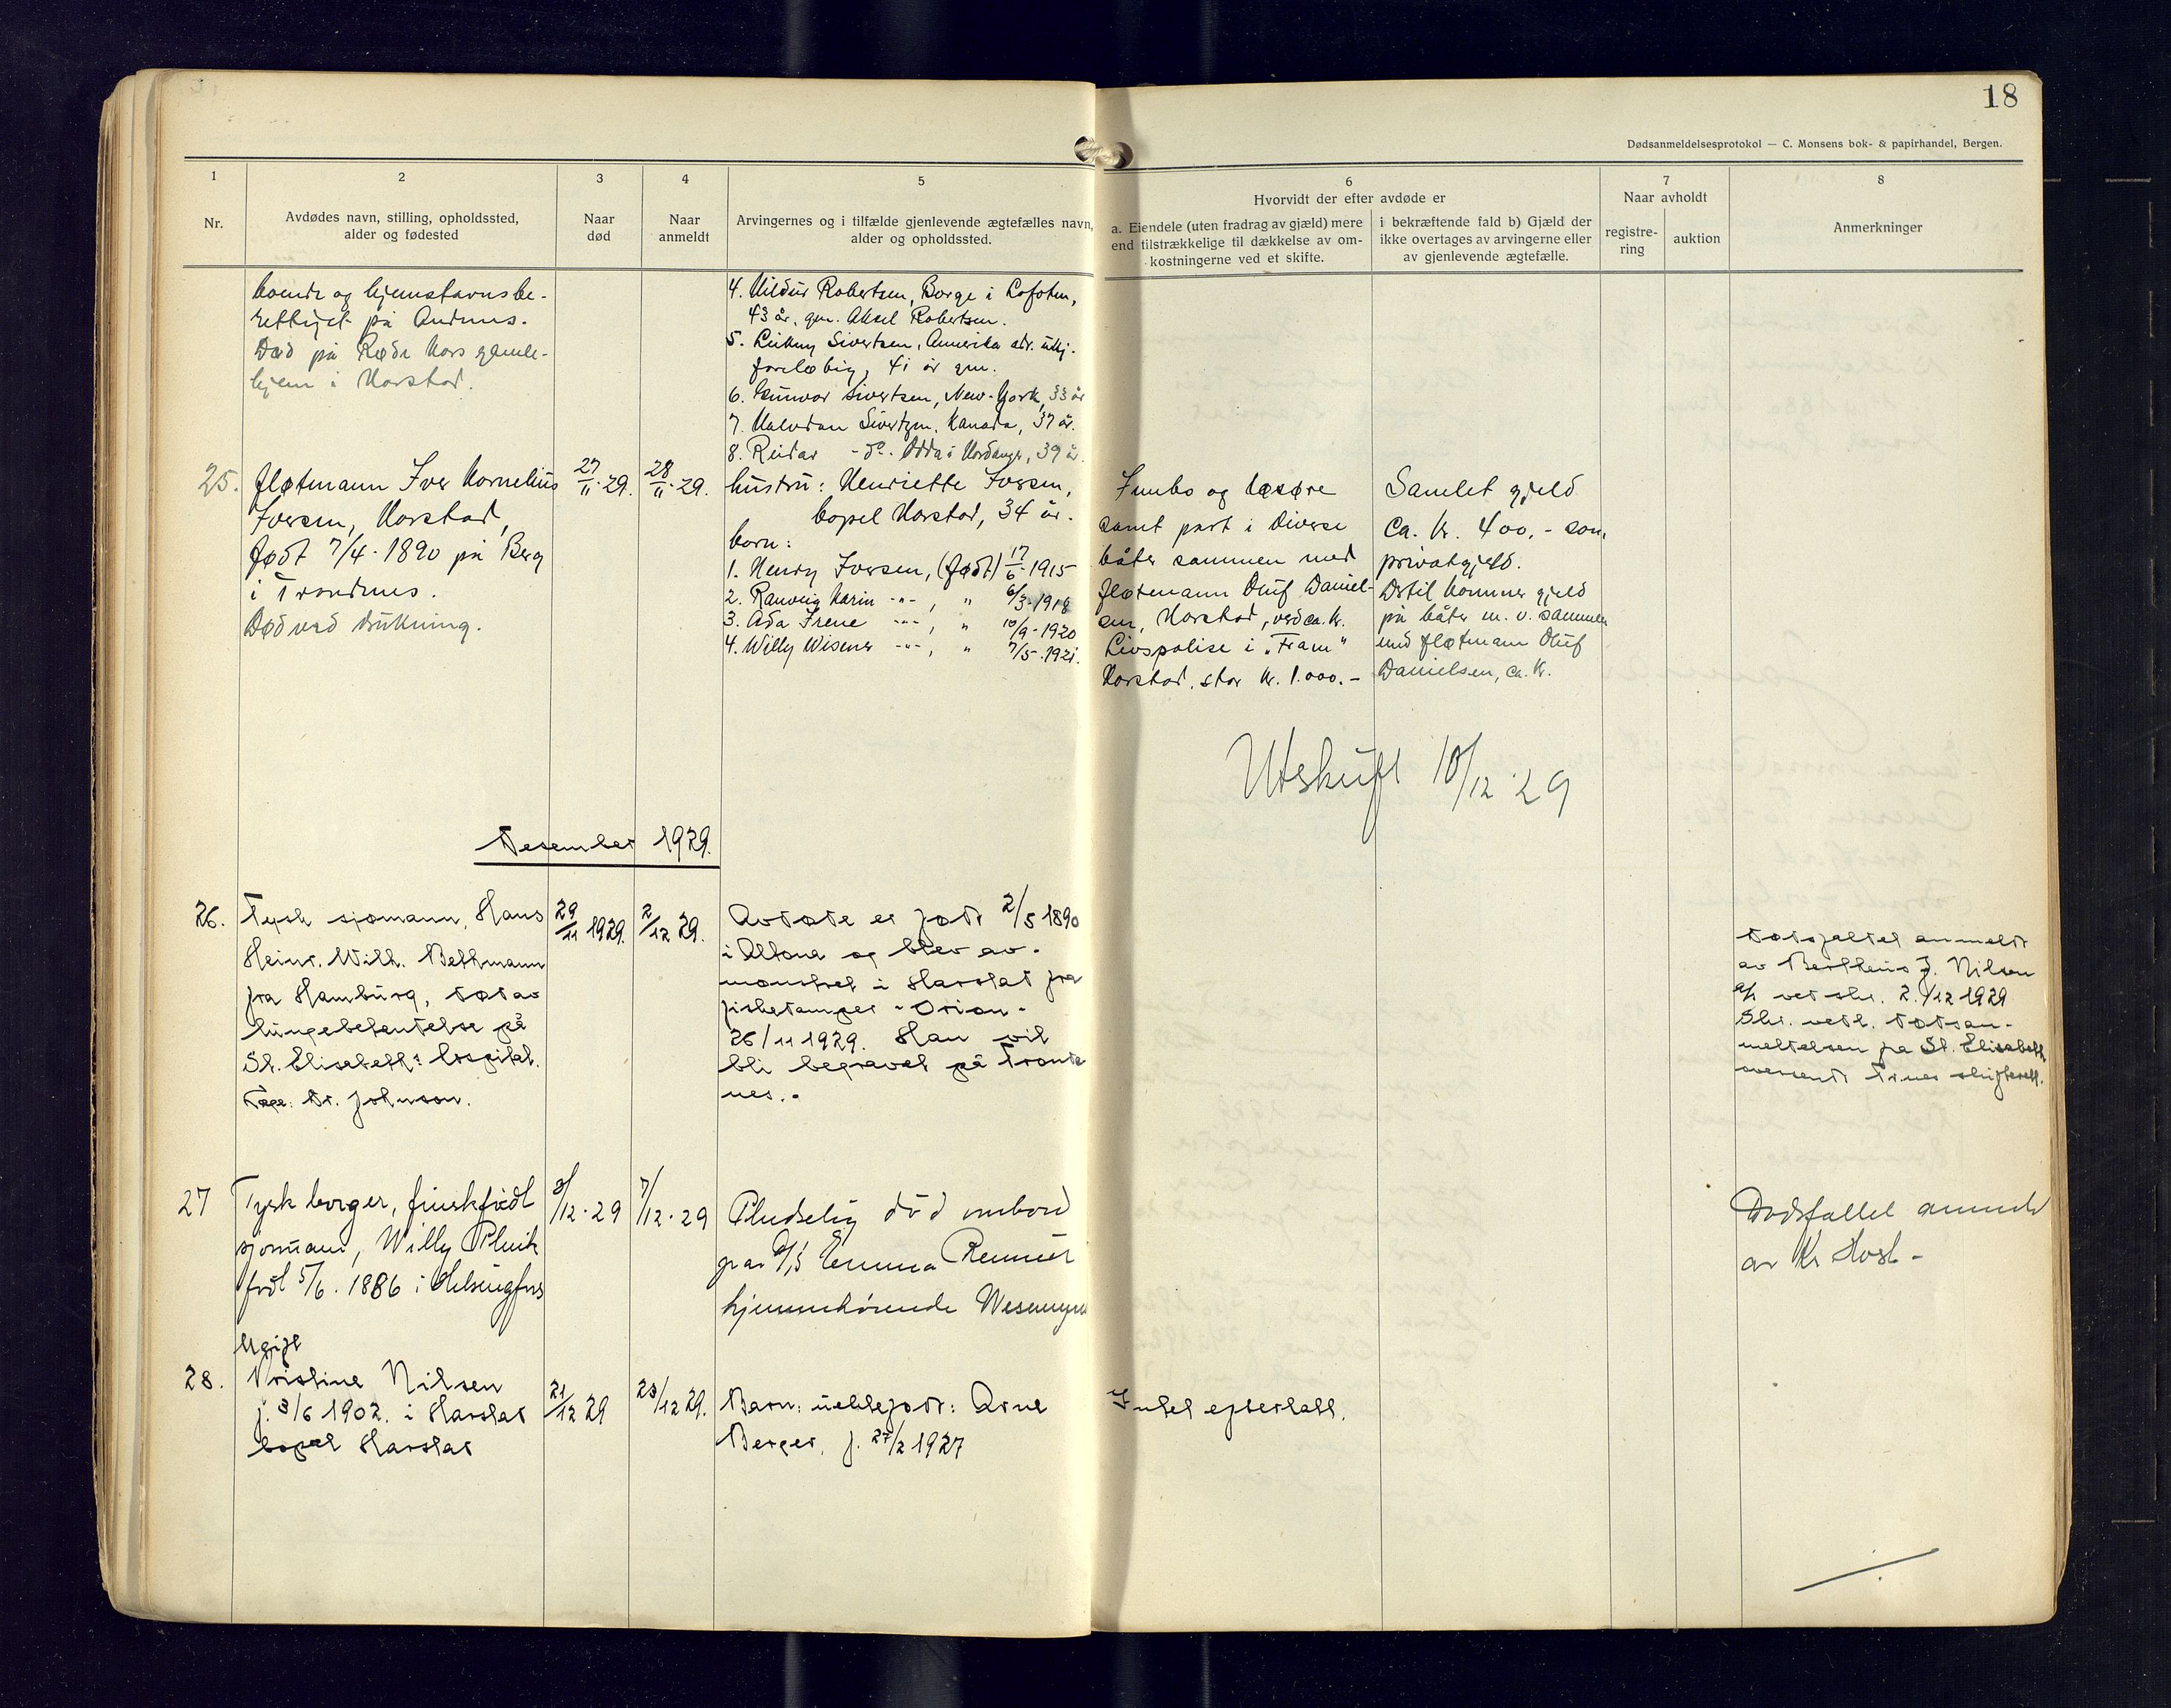 18
Dødsanmeldelsesprotokol — C. Monsens bok- & papirhandel, Bergen.
1
Nr.
2
Avdødes navn, stilling, opholdssted,
alder og fødested
3
Naar
død
4
Naar
anmeldt
5
Arvingernes og i tilfælde gjenlevende ægtefælles navn,
alder og opholdssted.
6
Hvorvidt der efter avdøde er
a. Eiendele (uten fradrag av gjæld) mere
end tilstrækkelige til dækkelse av om-
kostningerne ved et skifte.
i bekræftende fald b) Gjæld der
ikke overtages av arvingerne eller
av gjenlevende ægtefælle.
7
Naar avholdt
registre-
ring
auktion
8
Anmerkninger
boende og hjemstavnsbe-
rettiget på Andenes.
Død på Røde Kors gamle-
hjem i Harstad.
4. Hildur Robertsen, Borge i Lofoten,
43 år, gm. Aksel Robertsen.
5. Sivertsen, Amerika adr. ukj.
foreløbig, 41 år gm.
6. Gunvor Sivertsen, New-York, 33 år
7. Halvdan Sivertsen, Kanada, 37 år.
8. Reidar -do- Odda i Hardanger, 39 år.
25.
fløtmann Iver Kornelius
Iversen, Harstad,
født 7/4-1890 på Berg
i Trondenes.
Død ved drukning.
27/11-29.
28/11-29.
hustru: Henriette Iversen,
bopel Harstad, 34 år.
børn:
1. Henry Iversen, (født) 17/6-1915
2. Ranveig Karin -"-, " 6/3-1918
3. Ada Irene -"-, " 10/9-1920
4. Willy Wisener -"-, " 7/5-1921.
Innbo og løsøre
samt part i diverse
båter sammen med
fløtmann Oluf Daniel-
sen, Harstad, verd ca. kr.
Livspolise i „Fram"
Harstad, stor kr. 1.000.-
Samlet gjeld
ca. kr. 400.- som
privatgjeld.
Dertil kommer gjeld
på båter m. v. sammen
med fløtmann Oluf
Danielsen, ca. kr.
Utskrift 10/12 29
Desember 1929.
26.
Tysk sjømann, Hans
Heinr. Wilh. Bethmann
fra Hamburg, død av
lungebetendelse på
St. Elisabeth: hospital.
Læge: Dr. Johnson.
29/11 1929.
2/12 29.
Avdøde er født 2/5 1890
i Altona og blev av-
mønstret i Harstad fra
fiskedamper "Orion"
26/11 1929. Han vil
bli begravet på Tronde
nes.-
Dødsfallet anmeldt
av Bertheus J. Nilsen
a/s ved skr. 2./12 1929
Skr. vedl. dødsan-
meldelsen fra St. Elisabeth
oversendt Tr.nes skifterett.
27
Tysk borger, finskfødt
sjømann, Willy Pluik
født 5/6. 1886 i Helsingfors
Ugift
3/12-29
7/12-29
Pludselig død ombord
på D/S Emma Remmer
hjemmehørende
Dødsfallet anmeldt
av Kr Holst -
28.
Kristine Nilsen
f. 3/6 1902. i Harstad
bopæl Harstad
21/12 29
23/12 29.
Barn: uektefødt: Arne
Berger, f. 27/2 1927
Intet efterlatt.